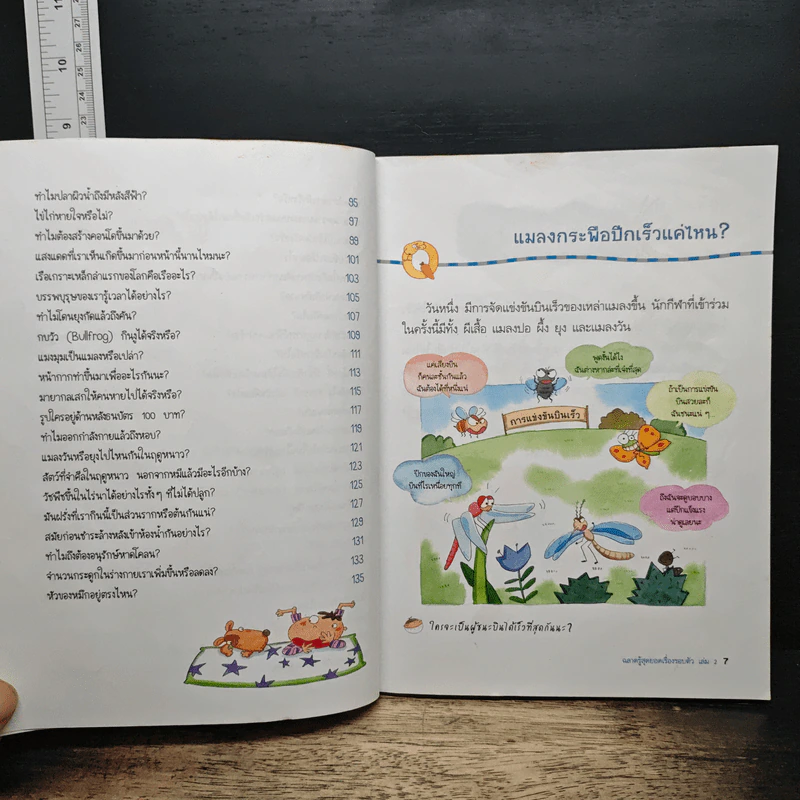 11
10
9
27
26
25
24
23
ทำไมปลาผิวน้ำถึงมีหลังสีฟ้า? 95
ไข่ไก่หายใจหรือไม่? 97
ทำไมต้องสร้างคอนโดขึ้นมาด้วย? 99
แสงแดดที่เราเห็นเกิดขึ้นมาก่อนหน้านี้นานไหมนะ? 101
เรือเกราะเหล็กลำแรกของโลกคือเรืออะไร? 103
บรรพบุรุษของเรารู้เวลาได้อย่างไร? 105
ทำไมโดนยุงกัดแล้วถึงคัน? 107
กบวัว (Bullfrog) กินงูได้จริงหรือ? 109
แมงมุมเป็นแมลงหรือเปล่า? 111
หน้ากากทำขึ้นมาเพื่ออะไรกันนะ? 113
มายากลเสกให้คนหายไปได้จริงหรือ? 115
รูปใครอยู่ด้านหลังธนบัตร 100 บาท? 117
ทำไมออกกำลังกายแล้วถึงหอบ? 119
แมลงวันหรือยุงไปไหนกันในฤดูหนาว? 121
สัตว์ที่จำศีลในฤดูหนาว นอกจากหมีแล้วมีอะไรอีกบ้าง? 123
วัชพืชขึ้นในไร่นาได้อย่างไรทั้งๆ ที่ไม่ได้ปลูก? 125
มันฝรั่งที่เรากินนี้เป็นส่วนรากหรือต้นกันแน่? 127
สมัยก่อนชำระล้างหลังเข้าห้องน้ำกันอย่างไร? 129
ทำไมถึงต้องอนุรักษ์หาดโคลน? 131
จำนวนกระดูกในร่างกายเราเพิ่มขึ้นหรือลดลง? 133
หัวของหมึกอยู่ตรงไหน? 135
Q
แมลงกระพือปีกเร็วแค่ไหน?
วันหนึ่ง มีการจัดแข่งขันบินเร็วของเหล่าแมลงขึ้น นักกีฬาที่เข้าร่วม
ในครั้งนี้มีทั้ง ผีเสื้อ แมลงปอ ผึ้ง ยุง และแมลงวัน
แค่เสียงบิน
ก็คนละชั้นกันแล้ว
ฉันต้องได้ที่หนึ่งแน่
พูดงั้นได้ไง
ฉันต่างหากล่ะที่เจ๋งที่สุด
ถ้าเป็นการแข่งขัน
บินสวยละก็
ฉันชนะแน่ ๆ
การแข่งขันบินเร็ว
ปีกของฉันใหญ่
บินทีไรเหนื่อยทุกที
ถึงฉันจะดูบอบบาง
แต่ปีกแข็งแรง
น่าดูเลยนะ
ใครจะเป็นผู้ชนะบินได้เร็วที่สุดกันนะ?
ฉลาดรู้สุดยอดเรื่องรอบตัว เล่ม 3 7